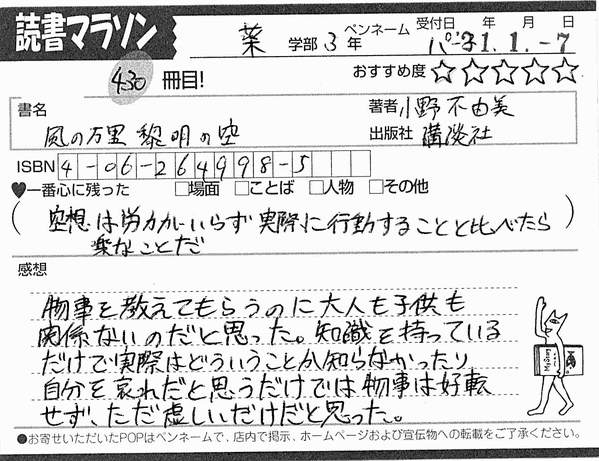 読書マラソン
薬 学部 3年
ペンネーム
受付日 年 月 日
1.1.-7
430 冊目!
おすすめ度 ☆☆☆☆☆
書名
風の万里 黎明の空
著者 小野不由美
出版社 講談社
ISBN 4-06-264998-5
♥一番心に残った □場面 □ことば □人物 □その他
(空想は労力がいらず実際に行動することと比べたら
楽なことだ)
感想
物事を教えてもらうのに大人も子供も
関係ないのだと思った。知識を持っている
だけで実際はどういうことか知らなかったり
自分を哀れだと思うだけでは物事は好転
せず、ただ虚しいだけだと思った。
●お寄せいただいたPOPはペンネームで、店内で掲示、ホームページおよび宣伝物への転載をご了承ください。